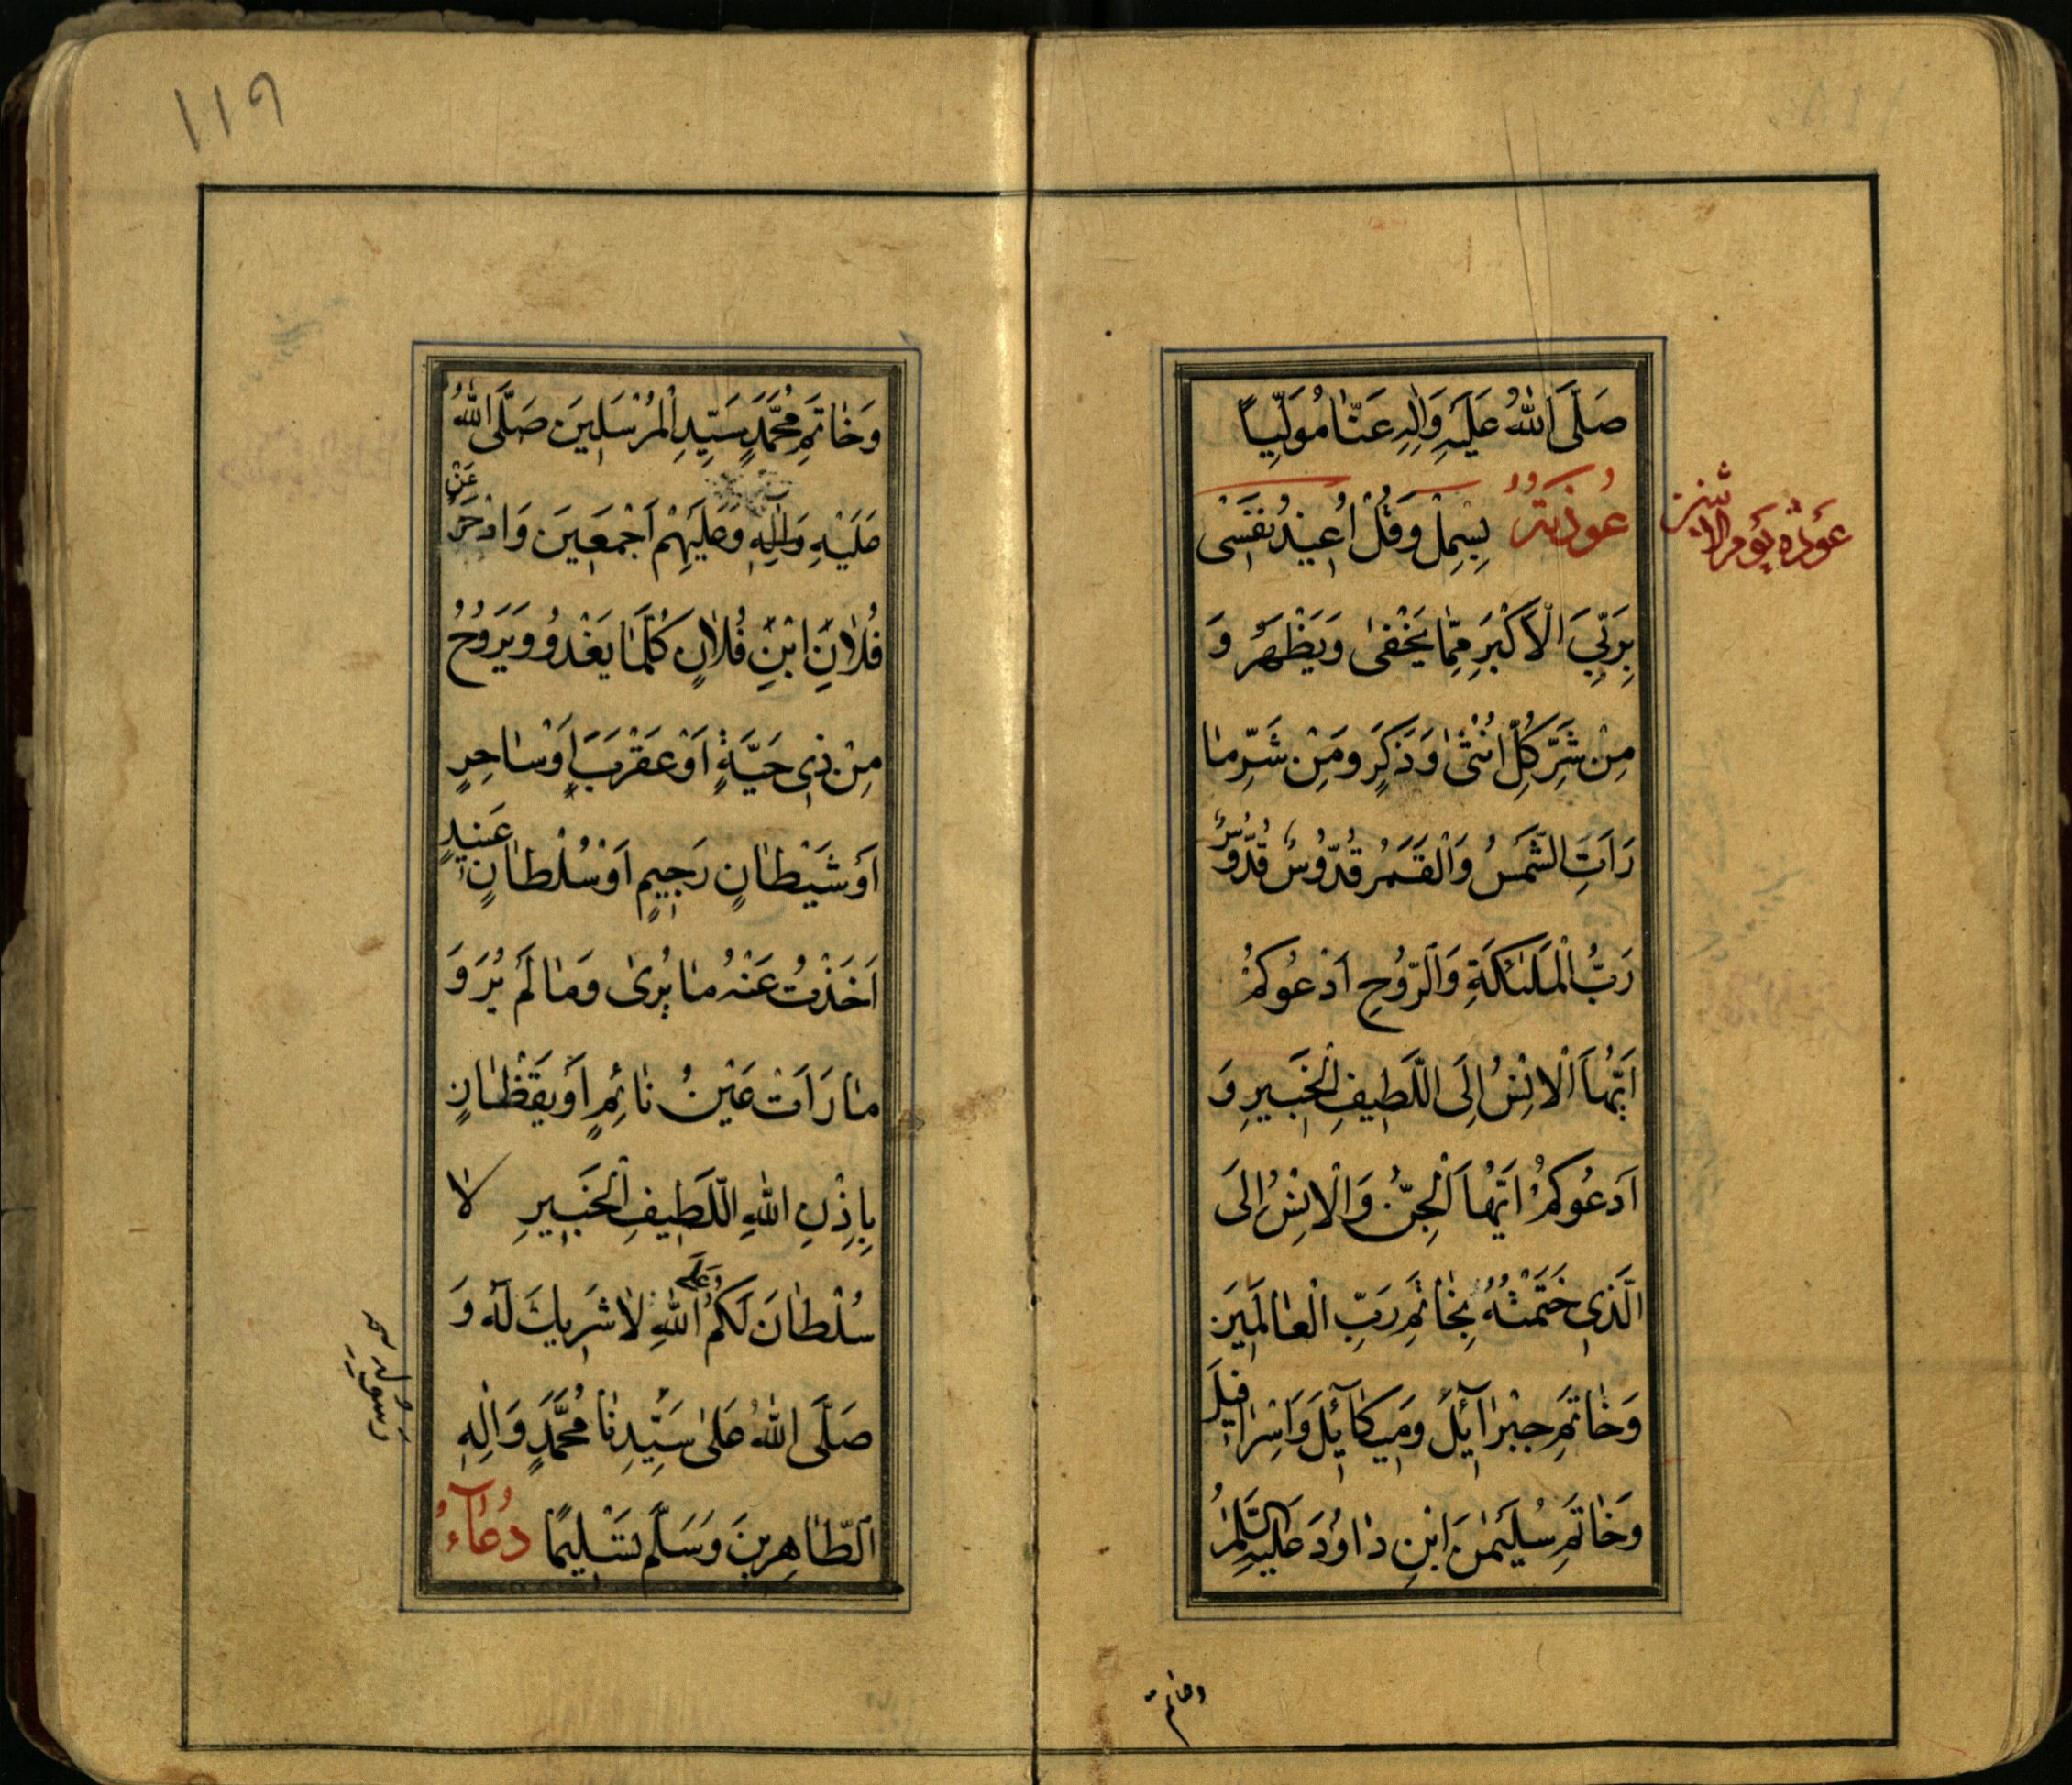 صَلَّى اللهُ عَلَيْهِ وَاٰلِهِ عَنَّا مُوَلِّيًا
عَوْذَةُ يَوْمِ الاثنين
عُوذَتُهُ بِسْمِلْ وَقُلْ اُعِيذُ نَفْسِى
بِرَبِّيَ الْاَكْبَرِ مِمَّا يَخْفىٰ وَيَظْهَرُ وَ
مِنْ شَرِّ كُلِّ اُنْثىٰ وَذَكَرٍ وَمِنْ شَرِّ مٰا
رَاَتِ الشَّمْسُ وَالْقَمَرُ قُدُّوسٌ قُدُّوسٌ
رَبُّ الْمَلٰئِكَةِ وَالرُّوحِ اَدْعُوكُمْ
اَيُّهَا الْاِنْسُ اِلَى اللَّطِيفِ الْخَبِيرِ وَ
اَدْعُوكُمْ اَيُّهَا الْجِنُّ وَالْاِنْسُ اِلَى
الَّذِى خَتَمْتُهُ بِخٰاتَمِ رَبِّ الْعٰالَمِينَ
وَخٰاتَمِ جِبْرٰآئِلَ وَمِيكٰآئِلَ وَاِسْرٰافِيلَ
وَخٰاتَمِ سُلَيْمٰنَ ابْنِ دٰاوُدَ عَلَيْهِ السَّلٰمُ
وخاتم
١١٩
وَخٰاتَمِ مُحَمَّدٍ سَيِّدِ الْمُرْسَلِينَ صَلَّى اللهُ
عَلَيْهِ وَاٰلِهِ وَعَلَيْهِمْ اَجْمَعِينَ وَازْجُرْ عَنْ
فُلٰانِ ابْنِ فُلٰانٍ كُلَّمٰا يَغْدُو وَيَرُوحُ
مِنْ ذِى حَيَّةٍ اَوْ عَقْرَبٍ اَوْ سٰاحِرٍ
اَوْ شَيْطٰانٍ رَجِيمٍ اَوْ سُلْطٰانٍ عَنِيدٍ
اَخَذْتُ عَنْهُ مٰا يُرىٰ وَمٰا لَمْ يُرَ وَ
مٰا رَاَتْ عَيْنُ نٰائِمٍ اَوْ يَقْظٰانٍ
بِاِذْنِ اللهِ اللَّطِيفِ الْخَبِيرِ لٰا
سُلْطٰانَ لَكُمْ عَلَى اللهِ لٰا شَرِيكَ لَهُ وَ
صَلَّى اللهُ عَلىٰ سَيِّدِنٰا مُحَمَّدٍ وَاٰلِهِ
الطّٰاهِرِينَ وَسَلَّمَ تَسْلِيمًا دُعٰآءُ